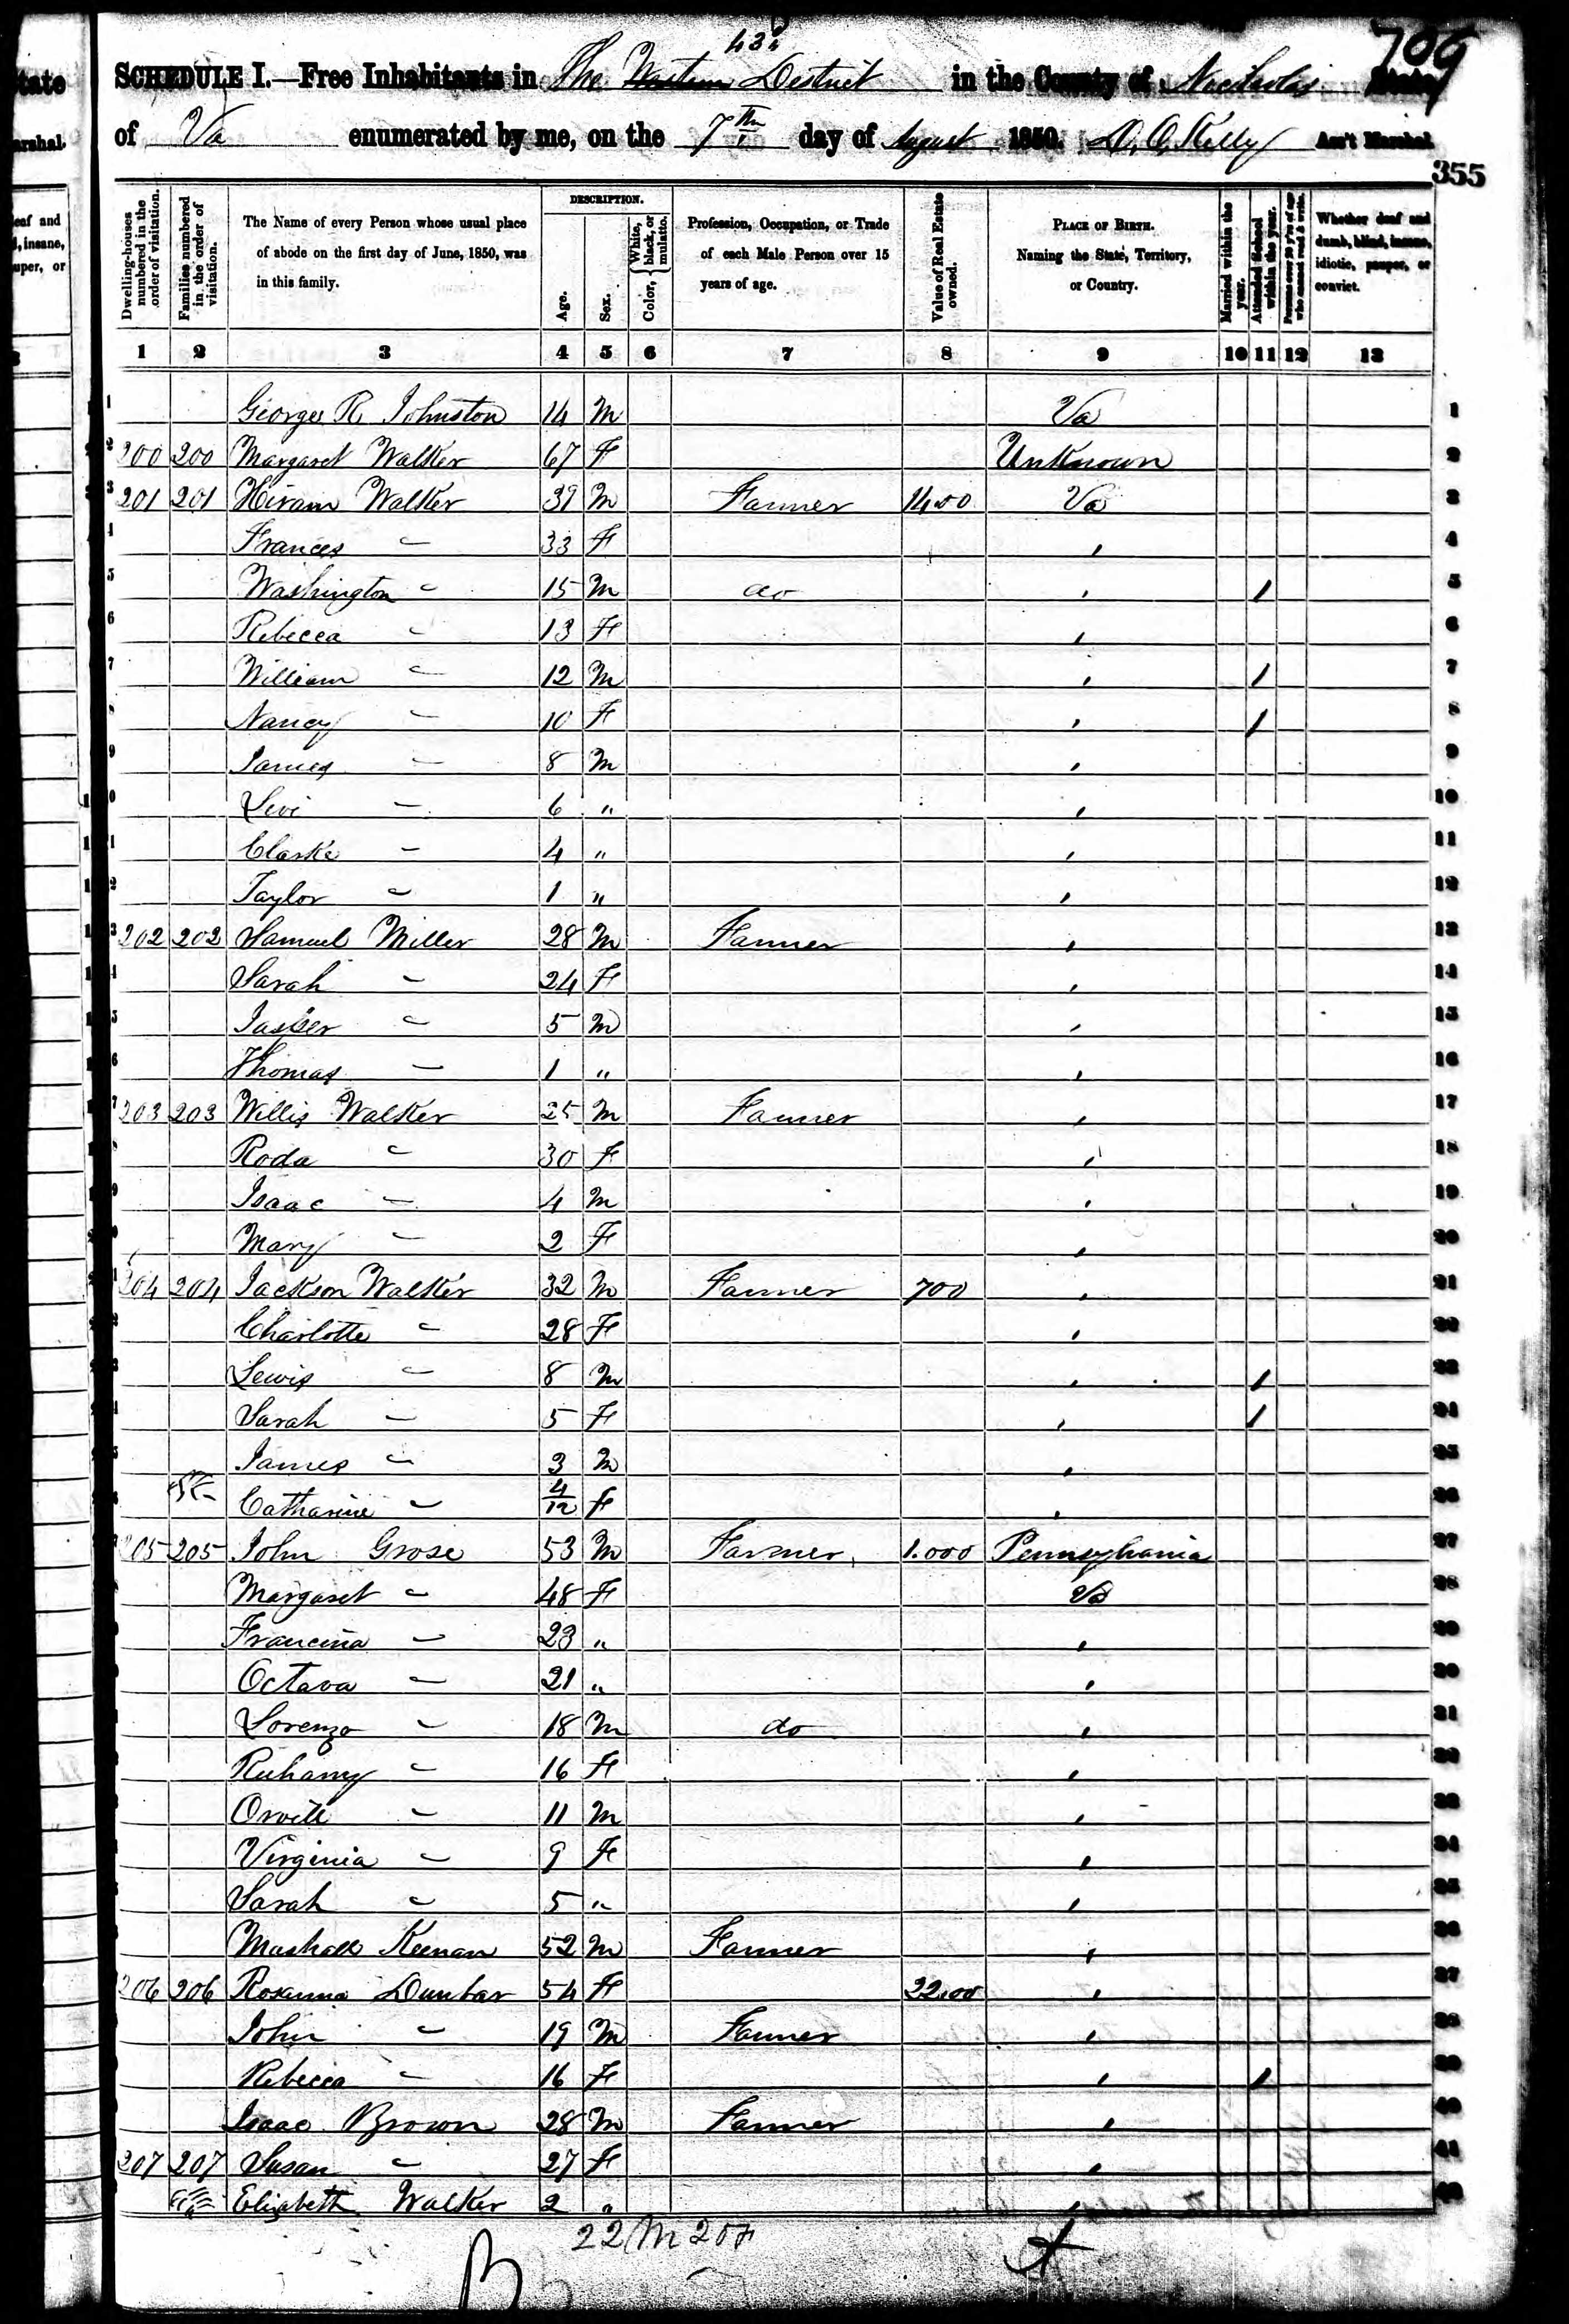 tate
arshal.
eaf and
l, insane,
uper, or
43d
709
SCHEDULE I.—Free Inhabitants in The Western District in the County of Nicholas State
of Va enumerated by me, on the 7th day of August 1850. Ass't Marshal.
355
Dwelling-houses numbered in the order of visitation.
Families numbered in the order of visitation.
The Name of every Person whose usual place of abode on the first day of June, 1850, was in this family.
DESCRIPTION.
Age.
Sex.
Color, { White, black, or mulatto.
Profession, Occupation, or Trade of each Male Person over 15 years of age.
Value of Real Estate owned.
PLACE OF BIRTH. Naming the State, Territory, or Country.
Married within the year.
Attended School within the year.
Persons over 20 y'rs of age who cannot read & write.
Whether deaf and dumb, blind, insane, idiotic, pauper, or convict.
1 2 3 4 5 6 7 8 9 10 11 12 13
1 George R Johnston 14 M Va 1
2 200 200 Margaret Walker 67 F Unknown 2
3 201 201 Hiram Walker 39 M Farmer 1400 Va 3
4 Frances " 33 F " 4
5 Washington " 15 M do " 1 5
6 Rebecca " 13 F " 6
7 William " 12 M " 1 7
8 Nancy " 10 F " 1 8
9 James " 8 M " 9
10 Levi " 6 " " 10
11 Clarke " 4 " " 11
12 Taylor " 1 " " 12
13 202 202 Samuel Miller 28 M Farmer " 13
14 Sarah " 24 F " 14
15 Jasper " 5 M " 15
16 Thomas " 1 " " 16
17 203 203 Willis Walker 25 M Farmer " 17
Roda " 30 F " 18
Isaac " 4 M " 19
Mary " 2 F " 20
204 204 Jackson Walker 32 M Farmer 700 " 21
Charlotte " 28 F " 22
Lewis " 8 M " 1 23
Sarah " 5 F " 1 24
James " 3 M " 25
Catharine " 4/12 F " 26
205 205 John Grose 53 M Farmer 1.000 Pennsylvania 27
Margaret " 48 F Va 28
Francina " 23 " " 29
Octava " 21 " " 30
Lorenzo " 18 M do " 31
Ruhamy " 16 F " 32
Orvill " 11 M " 33
Virginia " 9 F " 34
Sarah " 5 " " 35
Mashall Keenan 52 M Farmer " 36
206 206 Roxanna Dunbar 54 F 2200 " 37
John " 19 M Farmer " 38
Rebecca " 16 F " 1 39
Isaac Brown 28 M Farmer " 40
207 207 Susan " 27 F " 41
Elizabeth Walker 2 " " 42
22 M 20 F